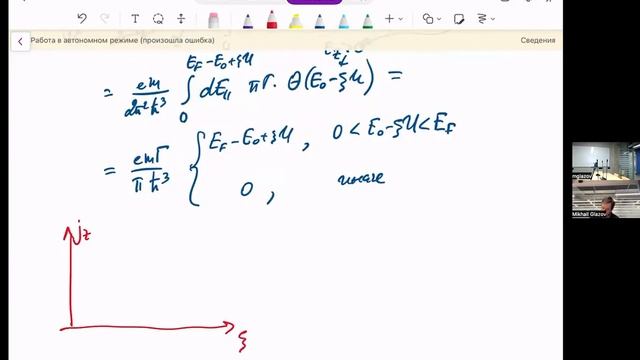 Работа в автономном режиме (произошла ошибка)
Сведения
E_F-E_0+ξU
= em/2π²ħ³ ∫ dE_{||} πΓ · Θ(E_0-ξU) =
0
= emΓ/πħ³ { E_F-E_0+ξU, 0<E_0-ξU<E_F
0, иначе
j_z
ξ
mglazov
Mikhail Glazov